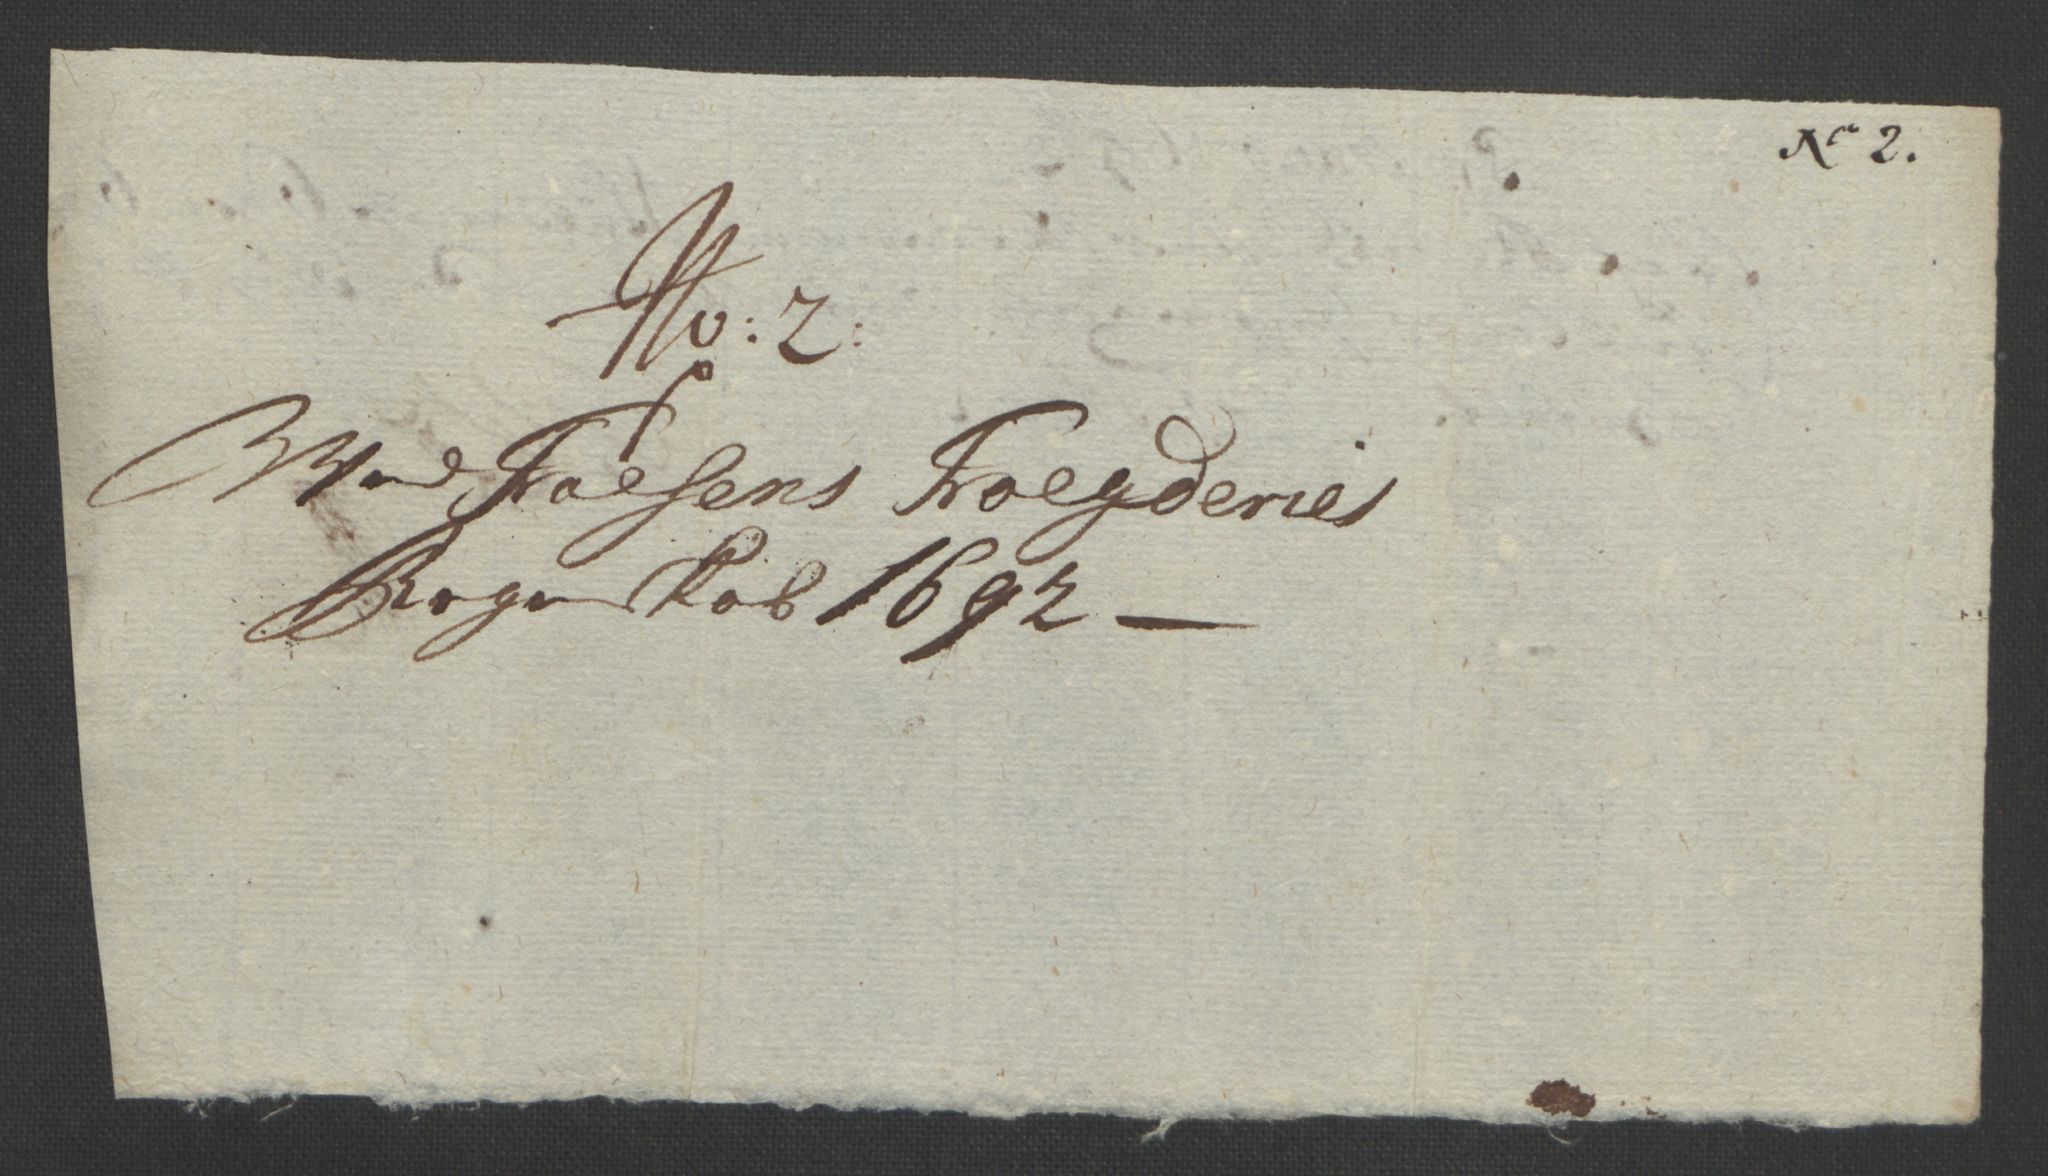 No 2.
No: 2:
Foesens Froegderies
Regenskab 1692 —